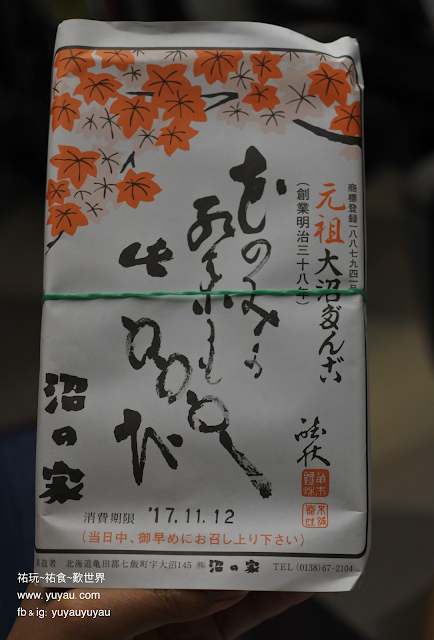 商標登録一八八七九四一号
元祖大沼だんご
(創業明治三十八年)
花のみか
沼の家
消費期限 '17.11.12
(当日中、御早めにお召し上り下さい)
造者 北海道亀田郡七飯町字大沼145 ㈱ 沼の家 TEL (0138) 67-2104
祐玩~祐食~歎世界
www.yuyau.com
fb & ig: yuyauyuyau